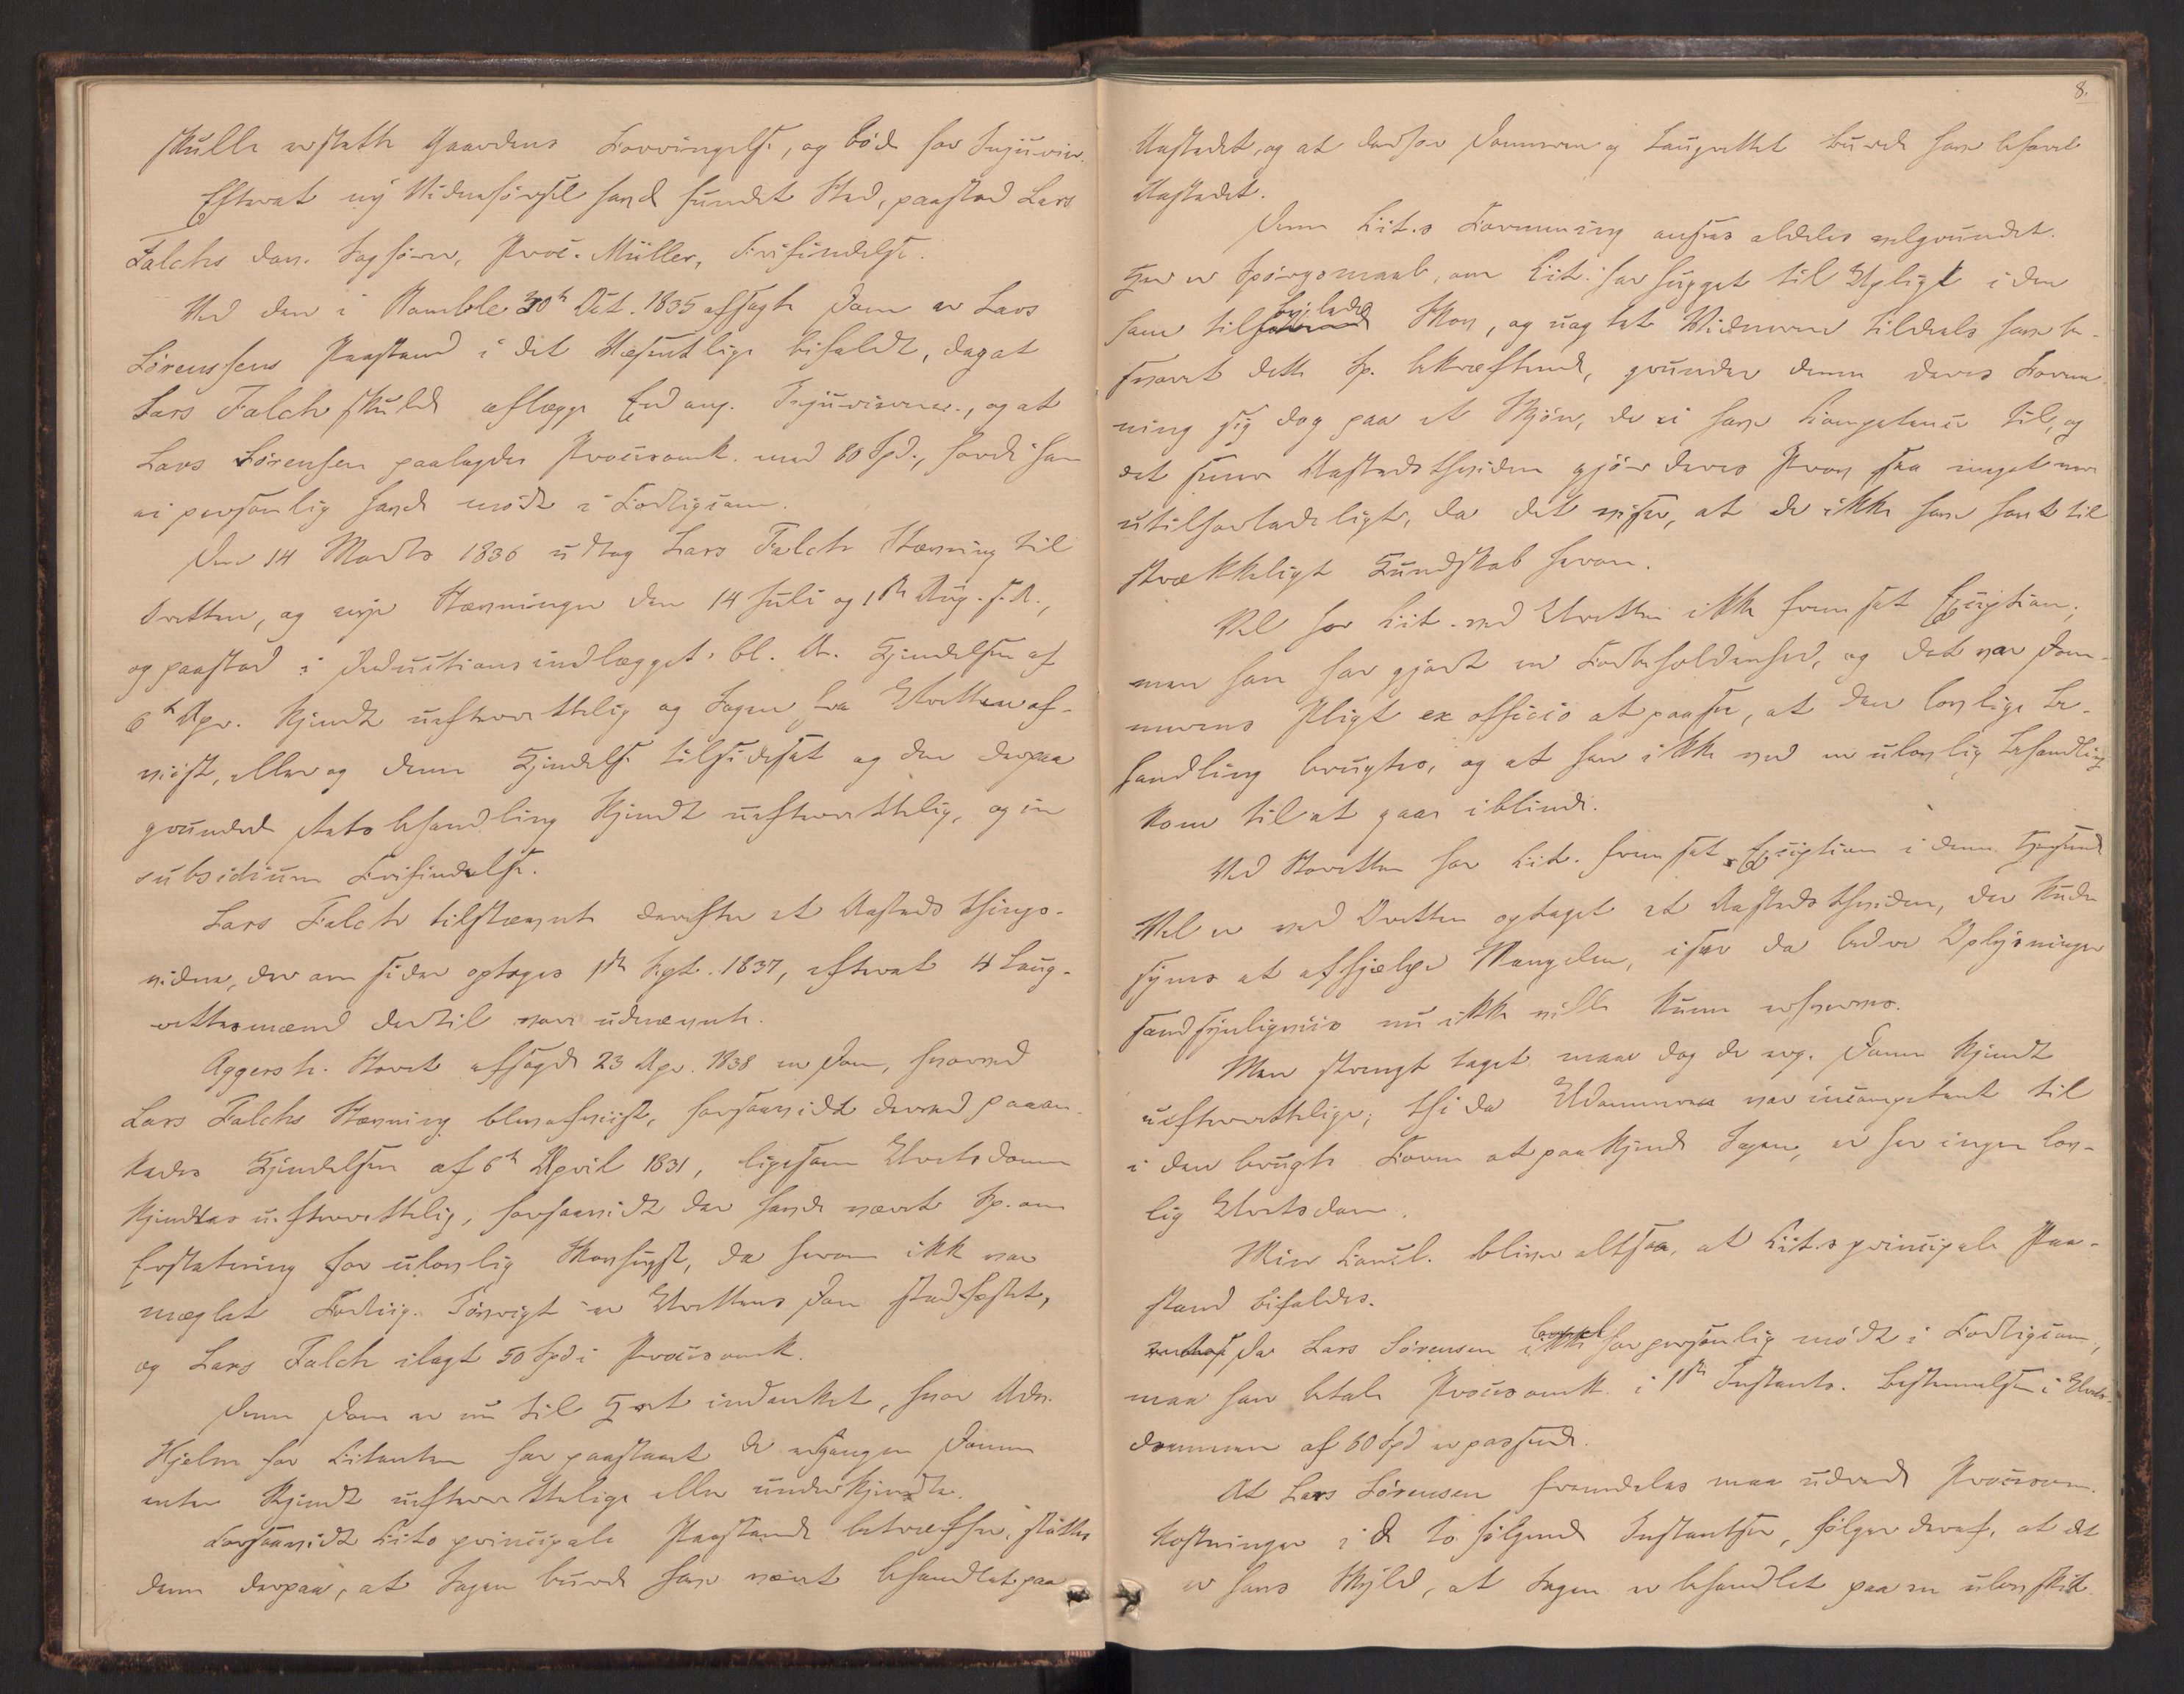 skulle erstatte Gaardens Forringelse, og bøde for Injurier.
Efterat ny Vidneførsel havde fundet Sted, paastod Lars
Falchs dav. Sagfører, Proc. Müller, Frifindelse.
Ved den i Bamble 30te Oct. 1835 afsagte Dom er Lars
Sørensens Paastand i det Væsentlige bifaldt, dog at
Lars Falch skulde aflægge Eed ang. Injurierne, og at
Lars Sørensen paalagdes Procesomk. med 60 Spd., fordi han
ei personlig havde mødt i Forligscom.
Den 14 Marts 1836 udtog Lars Falch Stævning til
Oretten, og nye Stævninger den 14 Juli og 1ste Aug. s. A.,
og paastod i Deductionsindlægget bl. A. Kjendelsen af
6te Apr. kjendt uefterrettelig og Sagen fra Uretten af-
viist, eller og denne Kjendelse tilsidesat og den derpaa
grundede Retsbehandling kjendt uefterrettelig, og in
subsidium Frifindelse.
Lars Falch tilstævnte derefter et Aastedsthings-
vidne, der om sider optoges 1ste Sept. 1837, efterat 4 Laug-
rettesmænd dertil vare udnævnte.
Aggersh. Storet afsagde 23 Apr. 1838 en Dom, hvorved
Lars Falchs Stævning blev afviist, forsaavidt derved paaan-
kedes Kjendelsen af 6te April 1831, ligesom Uretsdommen
kjendtes uefterrettelig, forsaavidt der havde været Sp. om
Erstatning for ulovlig Skovhugst, da herom ikke var
mæglet Forlig. Forøvrigt er Urettens Dom stadfæstet,
og Lars Falch ilagt 50 Spd i Procesomk.
Denne Dom er nu til Hret indanket, hvor Adv.
Hjelm for Citanten har paastaaet de ergangne Domme
enten kjendt uefterrettelige eller underkjendte.
Forsaavidt Cits principale Paastand betræffer, støttes
denne derpaa, at Sagen burde have været behandlet paa
8.
Aastedet, og at derfor Dommeren og Laugrettet burde have besaret
Aastedet.
Denne Cit.s Formening ansees aldeles velgrundet.
Her er Spørgsmaal, om Cit. har hugget til Upligt i den
ham tilhørende Skov, og uagtet Vidnerne tildeels have be-
svaret dette Sp. bekræftende, grunder denne deres Forme-
ning sig dog paa et Skjøn, de ei have Competence til, og
det senere Aastedsthsvidne gjør deres Prov saa meget mere
utilforladeligt, da det viser, at de ikke have havt til-
strækkeligt Kundskab herom.
Vel har Cit. ved Uretten ikke fremsat Exception;
men han har gjort en Forbeholdenhed, og det var Dom-
merens Pligt ex officio at paasee, at den lovlige Be-
handling brugtes, og at han ikke ved en ulovlig Behandling
kom til at gaae iblinde.
Ved Storetten har Cit. fremsat Exception i denne Henseende
Vel er ved Oretten optaget et Aastedsthsvidne, der kunde
synes at afhjælpe Mangelen, især da bedre Oplysninger
sandsynligviis nu ikke ville kunne erhverves.
Men strengt taget maae dog de erg. Domme kjendt
uefterrettelige; thi da Udommeren var incompetent til
i den brugte Form at paakjende Sagen, er her ingen lov-
lig Uretsdom.
Min Concl. bliver altsaa, at Cit.s principale Paa-
stand bifaldes.
Da Lars Sørensen ikke har personlig mødt i Forligscom.,
maa han betale Procesomk. i 1ste Instants. Bestemmelsen i Urets-
dommen af 60 Spd er passende.
At Lars Sørensen fremdeles maa udrede Procesom-
kostninger i de to følgende Instantser, følger deraf, at det
er hans Skyld, at Sagen er behandlet paa en ulovskik.